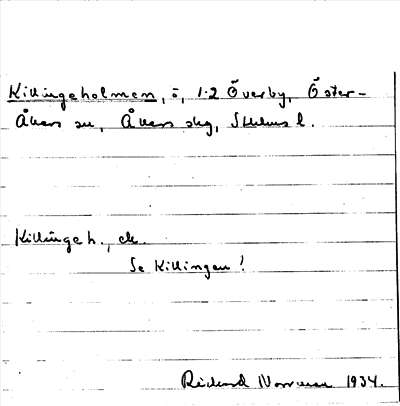 Killingeholmen, ö, 1·2 Överby, Öster-
Åkers sn, Åkers skg, Sthlms l.
Killinge h., ek.
Se Killingen!
Rickard Norrman 1934.